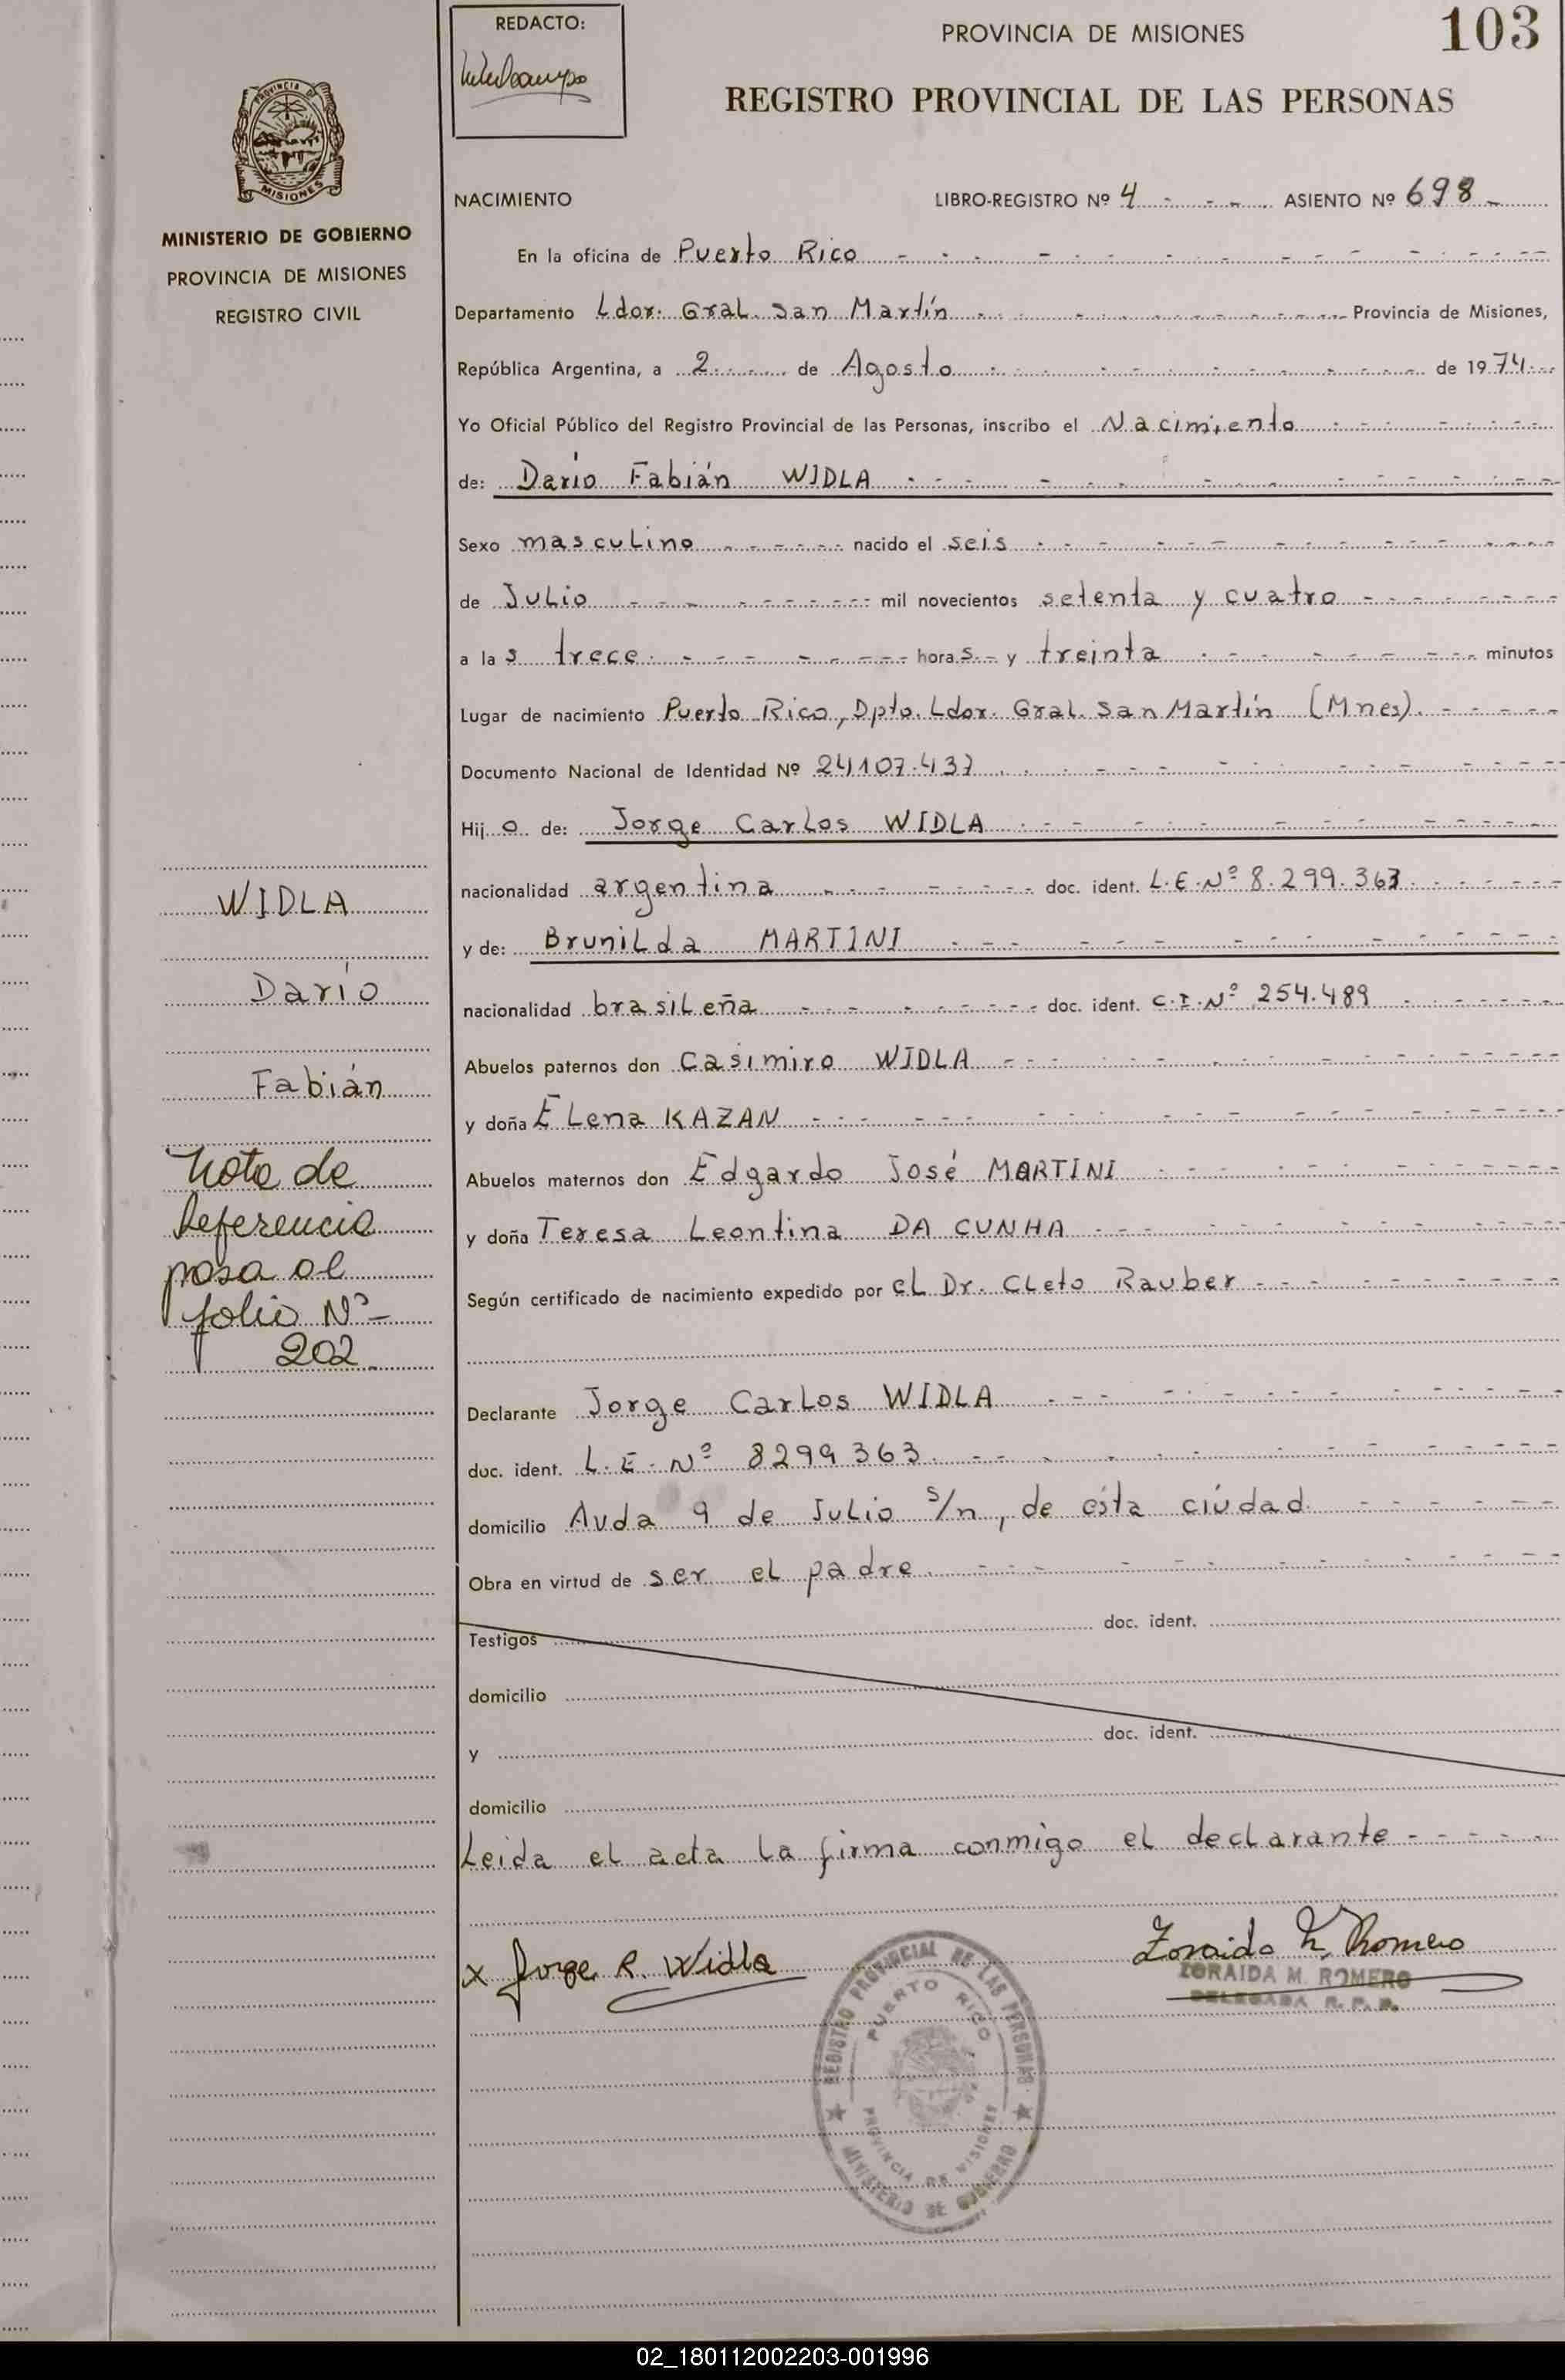 REDACTO:
PROVINCIA DE MISIONES
103
REGISTRO PROVINCIAL DE LAS PERSONAS
PROVINCIA DE
MISIONES
MINISTERIO DE GOBIERNO
PROVINCIA DE MISIONES
REGISTRO CIVIL
NACIMIENTO LIBRO-REGISTRO Nº 4 ASIENTO Nº 698
En la oficina de Puerto Rico
Departamento Ldor. Gral. San Martín Provincia de Misiones,
República Argentina, a 2 de Agosto de 1974
Yo Oficial Público del Registro Provincial de las Personas, inscribo el Nacimiento
de: Darío Fabián WIDLA
Sexo masculino nacido el seis
de Julio mil novecientos setenta y cuatro
a las trece horas y treinta minutos
Lugar de nacimiento Puerto Rico, Dpto. Ldor. Gral. San Martín (Mnes).
Documento Nacional de Identidad Nº 24107.437
Hijo de: Jorge Carlos WIDLA
nacionalidad argentina doc. ident. L.E.Nº 8.299.363
y de: Brunilda MARTINI
nacionalidad brasileña doc. ident. C.I.Nº 254.489
Abuelos paternos don Casimiro WIDLA
y doña Elena KAZAN
Abuelos maternos don Edgardo José MARTINI
y doña Teresa Leontina DA CUNHA
Según certificado de nacimiento expedido por el Dr. Cleto Rauber
Declarante Jorge Carlos WIDLA
doc. ident. L.E.Nº 8299363
domicilio Avda 9 de Julio s/n, de ésta ciudad
Obra en virtud de ser el padre
Testigos doc. ident.
domicilio
y doc. ident.
domicilio
Leida el acta la firma conmigo el declarante
WIDLA
Darío
Fabián
Nota de
Referencia
pasa al
folio Nº
202
x Jorge R. Widla
Zoraida M. Romero
ZORAIDA M. ROMERO
DELEGADA R. P. P.
REGISTRO PROVINCIAL DE LAS PERSONAS
PUERTO RICO
PROVINCIA DE MISIONES
MINISTERIO DE GOBIERNO
02_180112002203-001996